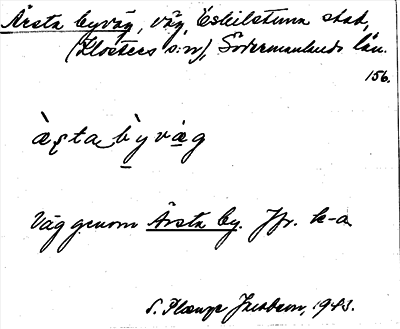 Årsta byväg, väg, Eskilstuna stad,
(Klosters s:n), Södermanlands län.
156.
àʂta b̀yvä̀g
Väg genom Årsta by. Jfr. k-a
S. Plænge Jacobson, 1943.